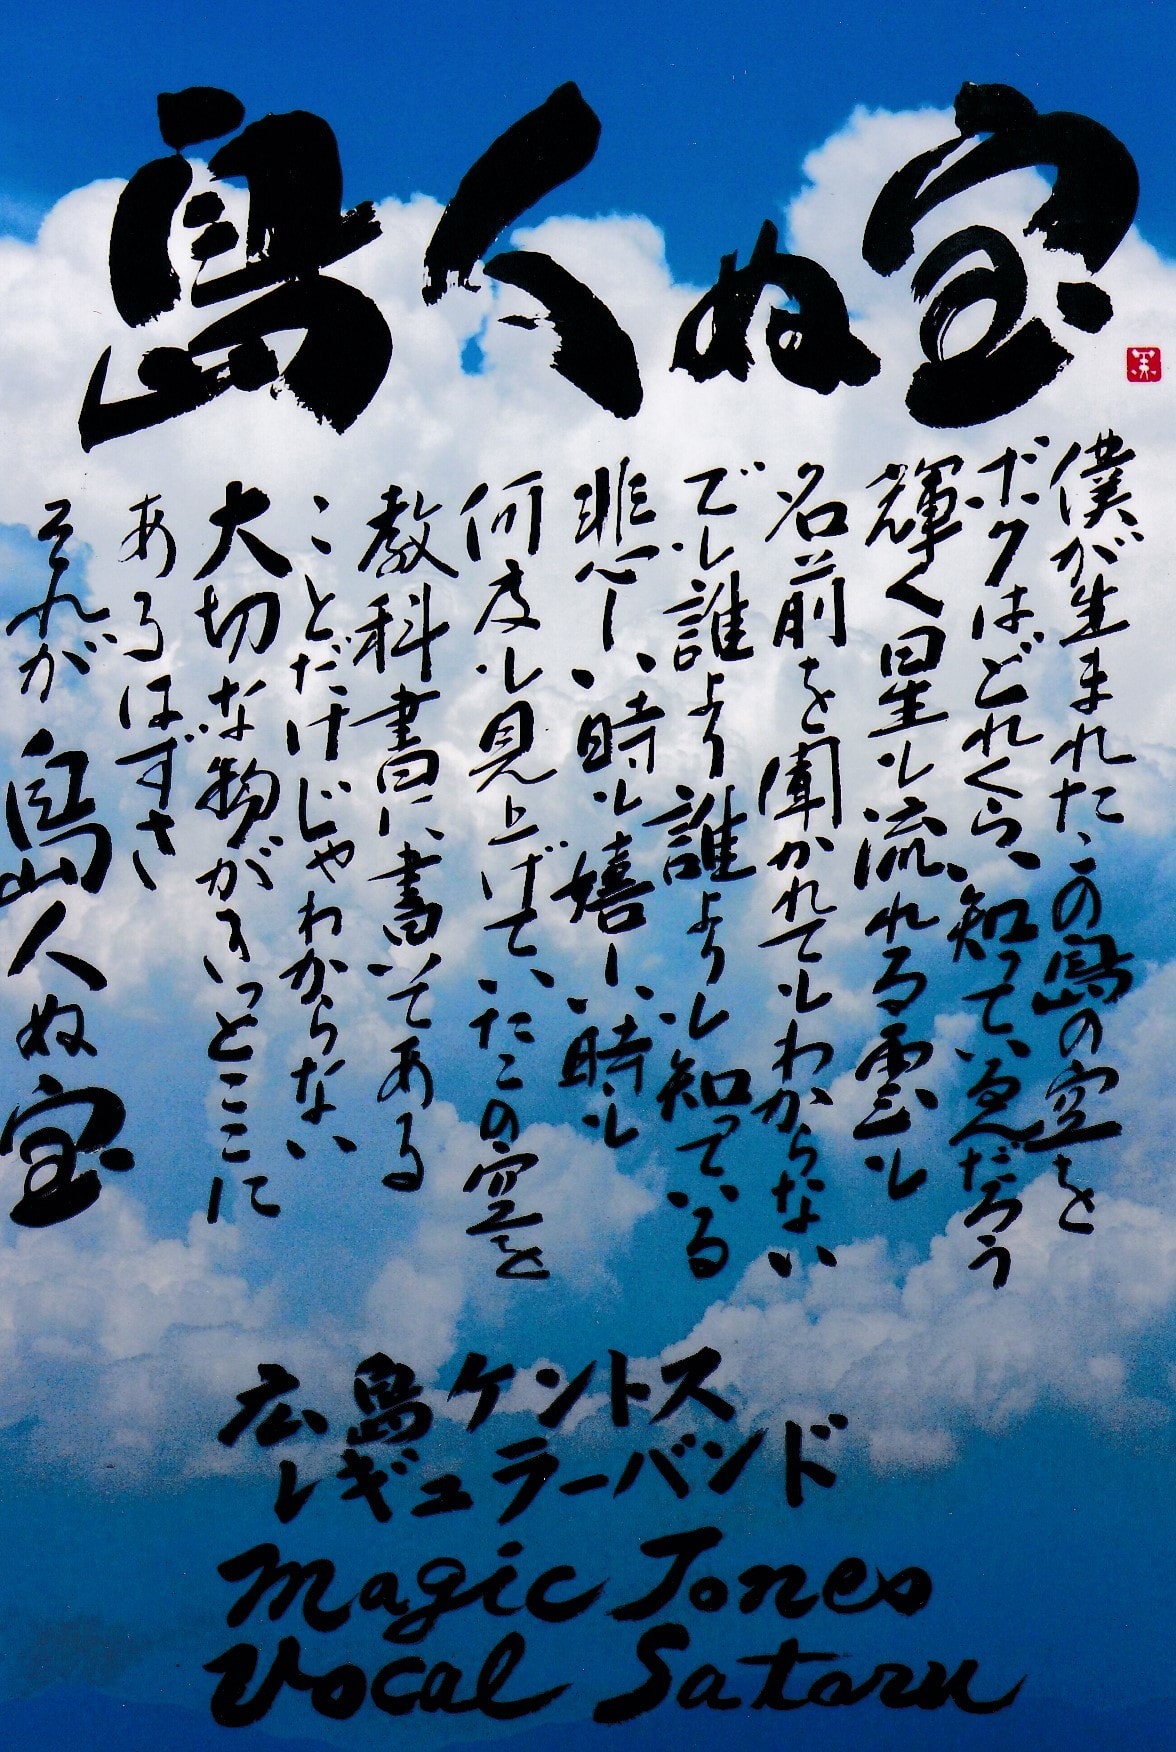 島人ぬ宝
僕が生まれたこの島の空を
ボクはどれくらい知っているんだろう
輝く星も流れる雲も
名前を聞かれてもわからない
でも誰より誰よりも知っている
悲しい時も嬉しい時も
何度も見上げていたこの空を
教科書に書いてある
ことだけじゃわからない
大切な物がきっとここに
あるはずさ
それが島人ぬ宝
広島ケントス
レギュラーバンド
Magic Jones
Vocal Satoru